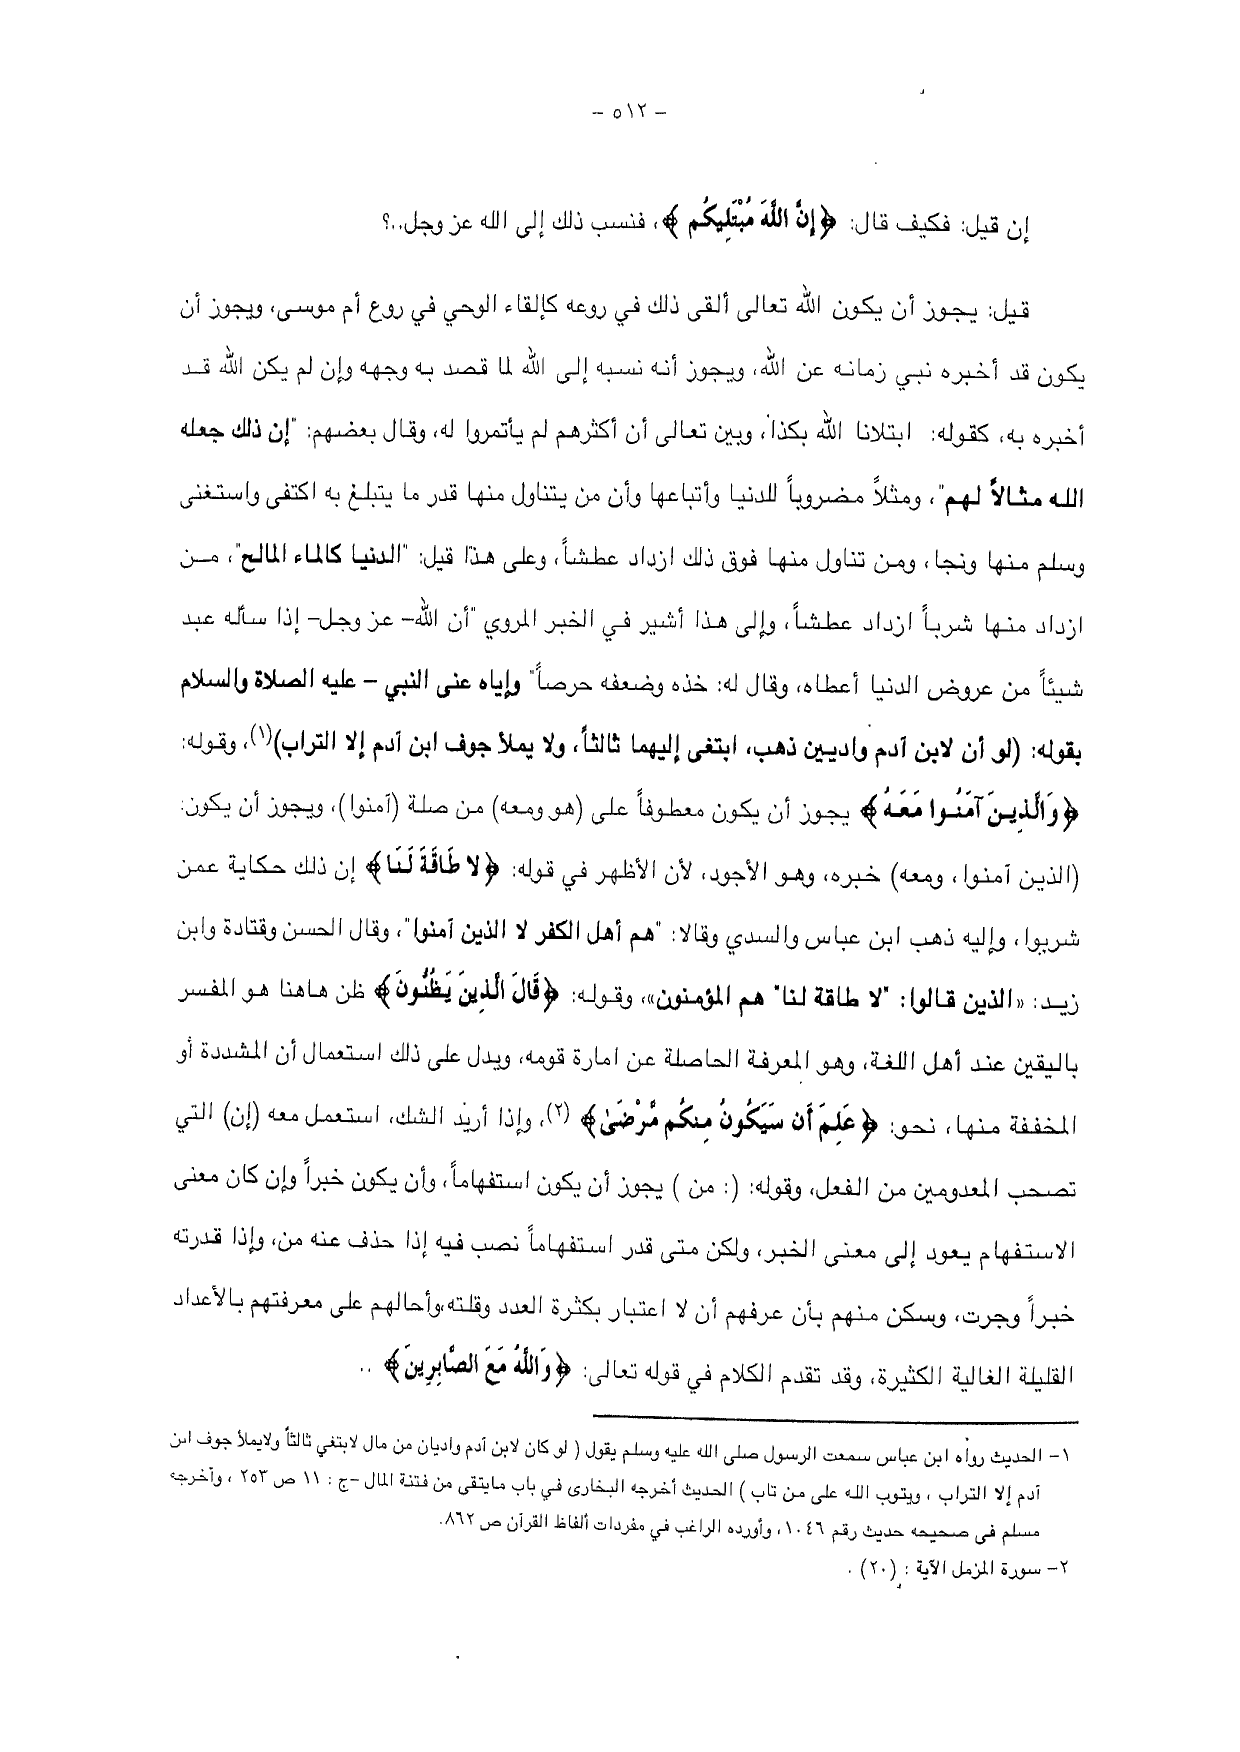 - ٥١٢ -
إن قيل: فكيف قال: ﴿إِنَّ اللَّهَ مُبْتَلِيكُم ﴾، فنسب ذلك إلى الله عز وجل..؟
قيل: يجوز أن يكون الله تعالى ألقى ذلك في روعه كإلقاء الوحي في روع أم موسى، ويجوز أن
يكون قد أخبره نبي زمانه عن الله، ويجوز أنه نسبه إلى الله لما قصد به وجهه وإن لم يكن الله قد
أخبره به، كقوله: ابتلانا الله بكذا، وبين تعالى أن أكثرهم لم يأتمروا له، وقال بعضهم: "إن ذلك جعله
الله مثالاً لهم"، ومثلاً مضروباً للدنيا وأتباعها وأن من يتناول منها قدر ما يتبلغ به اكتفى واستغنى
وسلم منها ونجا، ومن تناول منها فوق ذلك ازداد عطشاً، وعلى هذا قيل: "الدنيا كالماء المالح"، من
ازداد منها شرباً ازداد عطشاً، وإلى هذا أشير في الخبر المروي "أن الله- عز وجل- إذا سأله عبد
شيئاً من عروض الدنيا أعطاه، وقال له: خذه وضعفه حرصاً" وإياه عنى النبي - عليه الصلاة والسلام
بقوله: (لو أن لابن آدم واديين ذهب، ابتغى إليهما ثالثاً، ولا يملأ جوف ابن آدم إلا التراب)(١)، وقوله:
﴿وَالَّذِينَ آمَنُوا مَعَهُ﴾ يجوز أن يكون معطوفاً على (هو ومعه) من صلة (آمنوا)، ويجوز أن يكون:
(الذين آمنوا، ومعه) خبره، وهو الأجود، لأن الأظهر في قوله: ﴿لا طَاقَةَ لَنَا﴾ إن ذلك حكاية عمن
شربوا، وإليه ذهب ابن عباس والسدي وقالا: "هم أهل الكفر لا الذين آمنوا"، وقال الحسن وقتادة وابن
زيد: «الذين قالوا: "لا طاقة لنا" هم المؤمنون»، وقوله: ﴿قَالَ الَّذِينَ يَظُنُّونَ﴾ ظن هاهنا هو المفسر
باليقين عند أهل اللغة، وهو المعرفة الحاصلة عن امارة قومه، ويدل على ذلك استعمال أن المشددة أو
المخففة منها، نحو: ﴿عَلِمَ أَن سَيَكُونُ مِنكُم مَّرْضَى﴾ (٢)، وإذا أريد الشك، استعمل معه (إن) التي
تصحب المعدومين من الفعل، وقوله: (: من ) يجوز أن يكون استفهاماً، وأن يكون خبراً وإن كان معنى
الاستفهام يعود إلى معنى الخبر، ولكن متى قدر استفهاماً نصب فيه إذا حذف عنه من، وإذا قدرته
خبراً وجرت، وسكن منهم بأن عرفهم أن لا اعتبار بكثرة العدد وقلته،وأحالهم على معرفتهم بالأعداد
القليلة الغالية الكثيرة، وقد تقدم الكلام في قوله تعالى: ﴿وَاللَّهُ مَعَ الصَّابِرِينَ﴾ ..
١- الحديث رواه ابن عباس سمعت الرسول صلى الله عليه وسلم يقول ( لو كان لابن آدم واديان من مال لابتغي ثالثاً ولايملأ جوف ابن
آدم إلا التراب ، ويتوب الله على من تاب ) الحديث أخرجه البخارى في باب مايتقى من فتنة المال -ج : ١١ ص ٢٥٣ ، وآخرجه
مسلم فى صحيحه حديث رقم ١٠٤٦، وأورده الراغب في مفردات ألفاظ القرآن ص ٨٦٢.
٢- سورة المزمل الآية : (٢٠) .